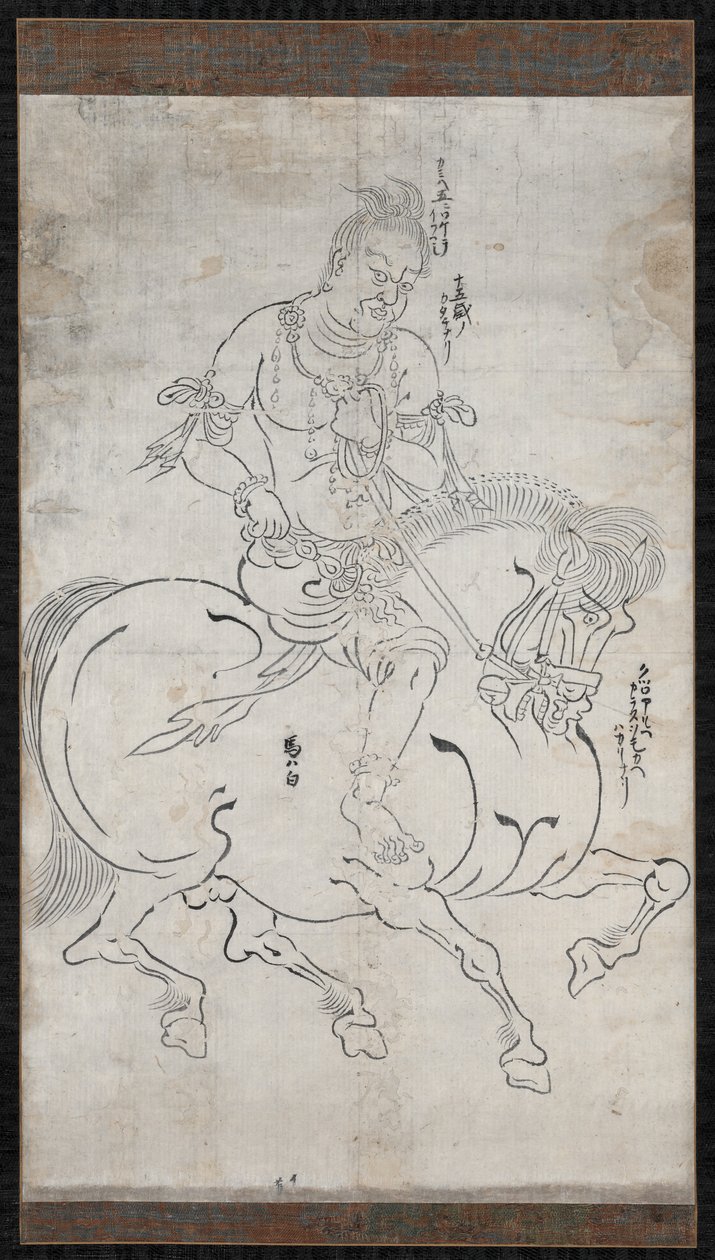 カミハ五ニワケテ
十五歳ノ
カタチナリ
クツワアルヘ
カラスヲモカヘ
ハカリナリ
馬ハ白